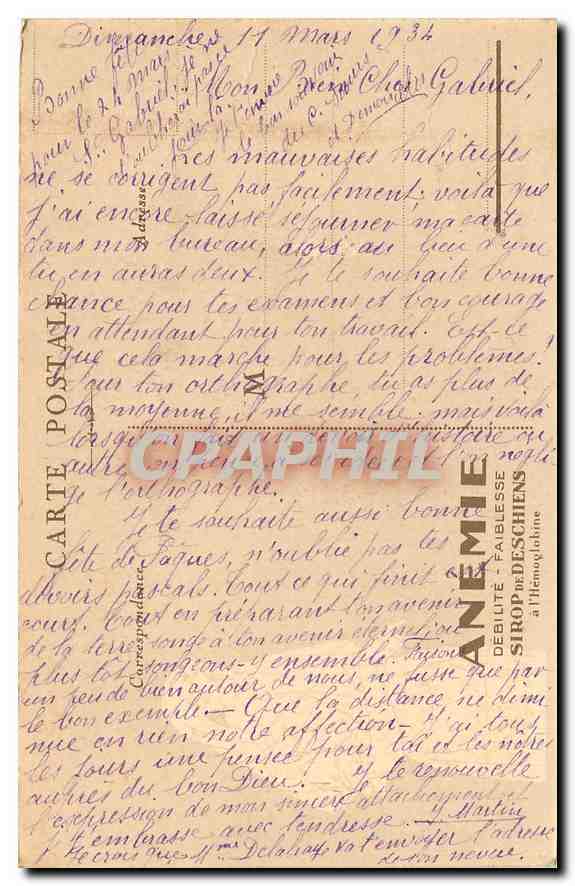 Dimanche 11 Mars 1934
Bonne fête
pour le 24 mars
St Gabriel, je ne
t'oublierai pas ce
jour là.
Mon Bien Cher Gabriel,
Mes mauvaises habitudes
ne se corrigent pas facilement, voilà que
j'ai encore laissé séjourner ma carte
dans mon bureau, alors au lieu d'une
tu en auras deux. Je te souhaite bonne
chance pour tes examens et bon courage
en attendant pour ton travail. Est-ce
que cela marche pour les problèmes!
Pour ton orthographe, tu as plus de
la moyenne, il me semble, mais voilà
lorsqu'on fait un d'histoire ou
autre
ge l'orthographe.
Je te souhaite aussi bonne
fête de Pâques, n'oublie pas les
devoirs pascals. Tout ce qui finit est
court. Tout en préparant ton avenir
de la terre songe à ton avenir éternel ou
plus tôt songeons-y ensemble. Faisons
un peu de bien autour de nous, ne fusse que par
le bon exemple. Que la distance ne dimi
nue en rien notre affection. J'ai tous
les jours une pensée pour toi et les nôtres
auprès du bon Dieu. Je te renouvelle
l'expression de mon sincère attachement et
t'embrasse avec tendresse. J Martin
Je crois que Mme Delahaye va t'envoyer l'adresse
de son neveu.
CARTE POSTALE
Adresse
Correspondance
M
ANÉMIE
DÉBILITÉ - FAIBLESSE
SIROP DE DESCHIENS
à l'Hémoglobine
CPAPHIL